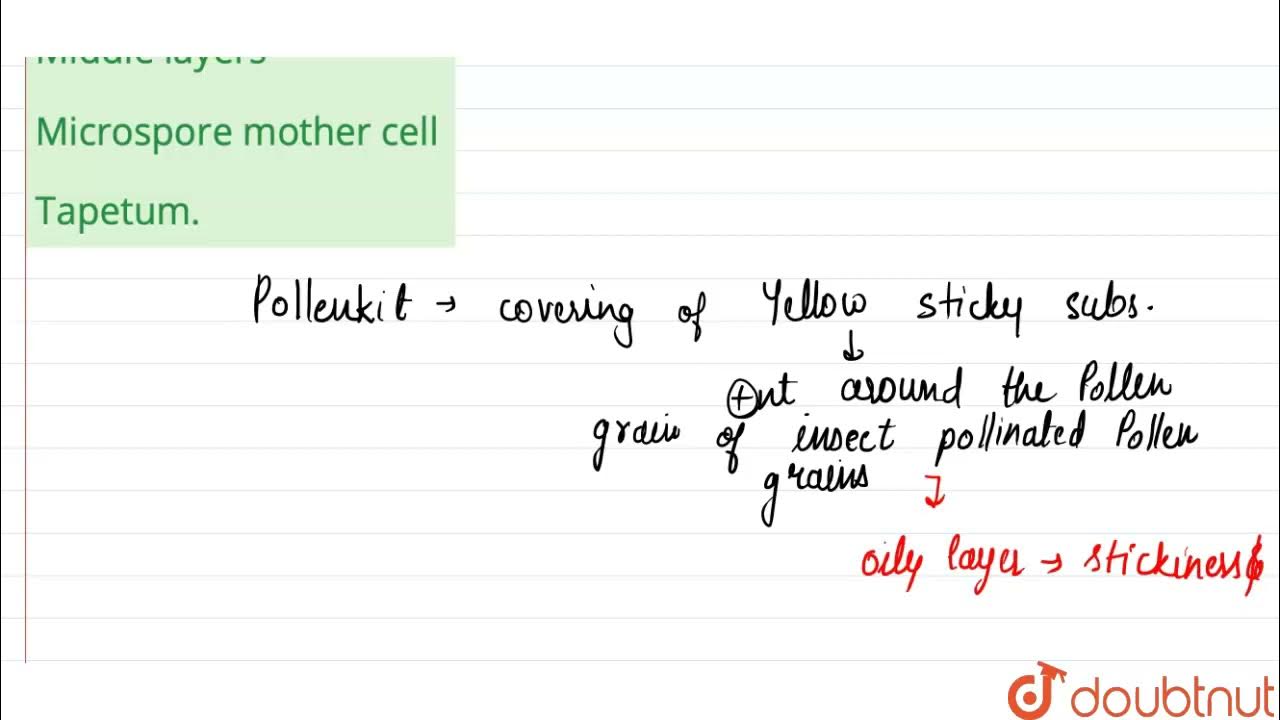 Middle layers
Microspore mother cell
Tapetum.
Pollenkit → covering of Yellow sticky subs.
↓
⊕nt around the Pollen
grain of insect pollinated Pollen
grains
↓
oily layer → stickiness
doubtnut